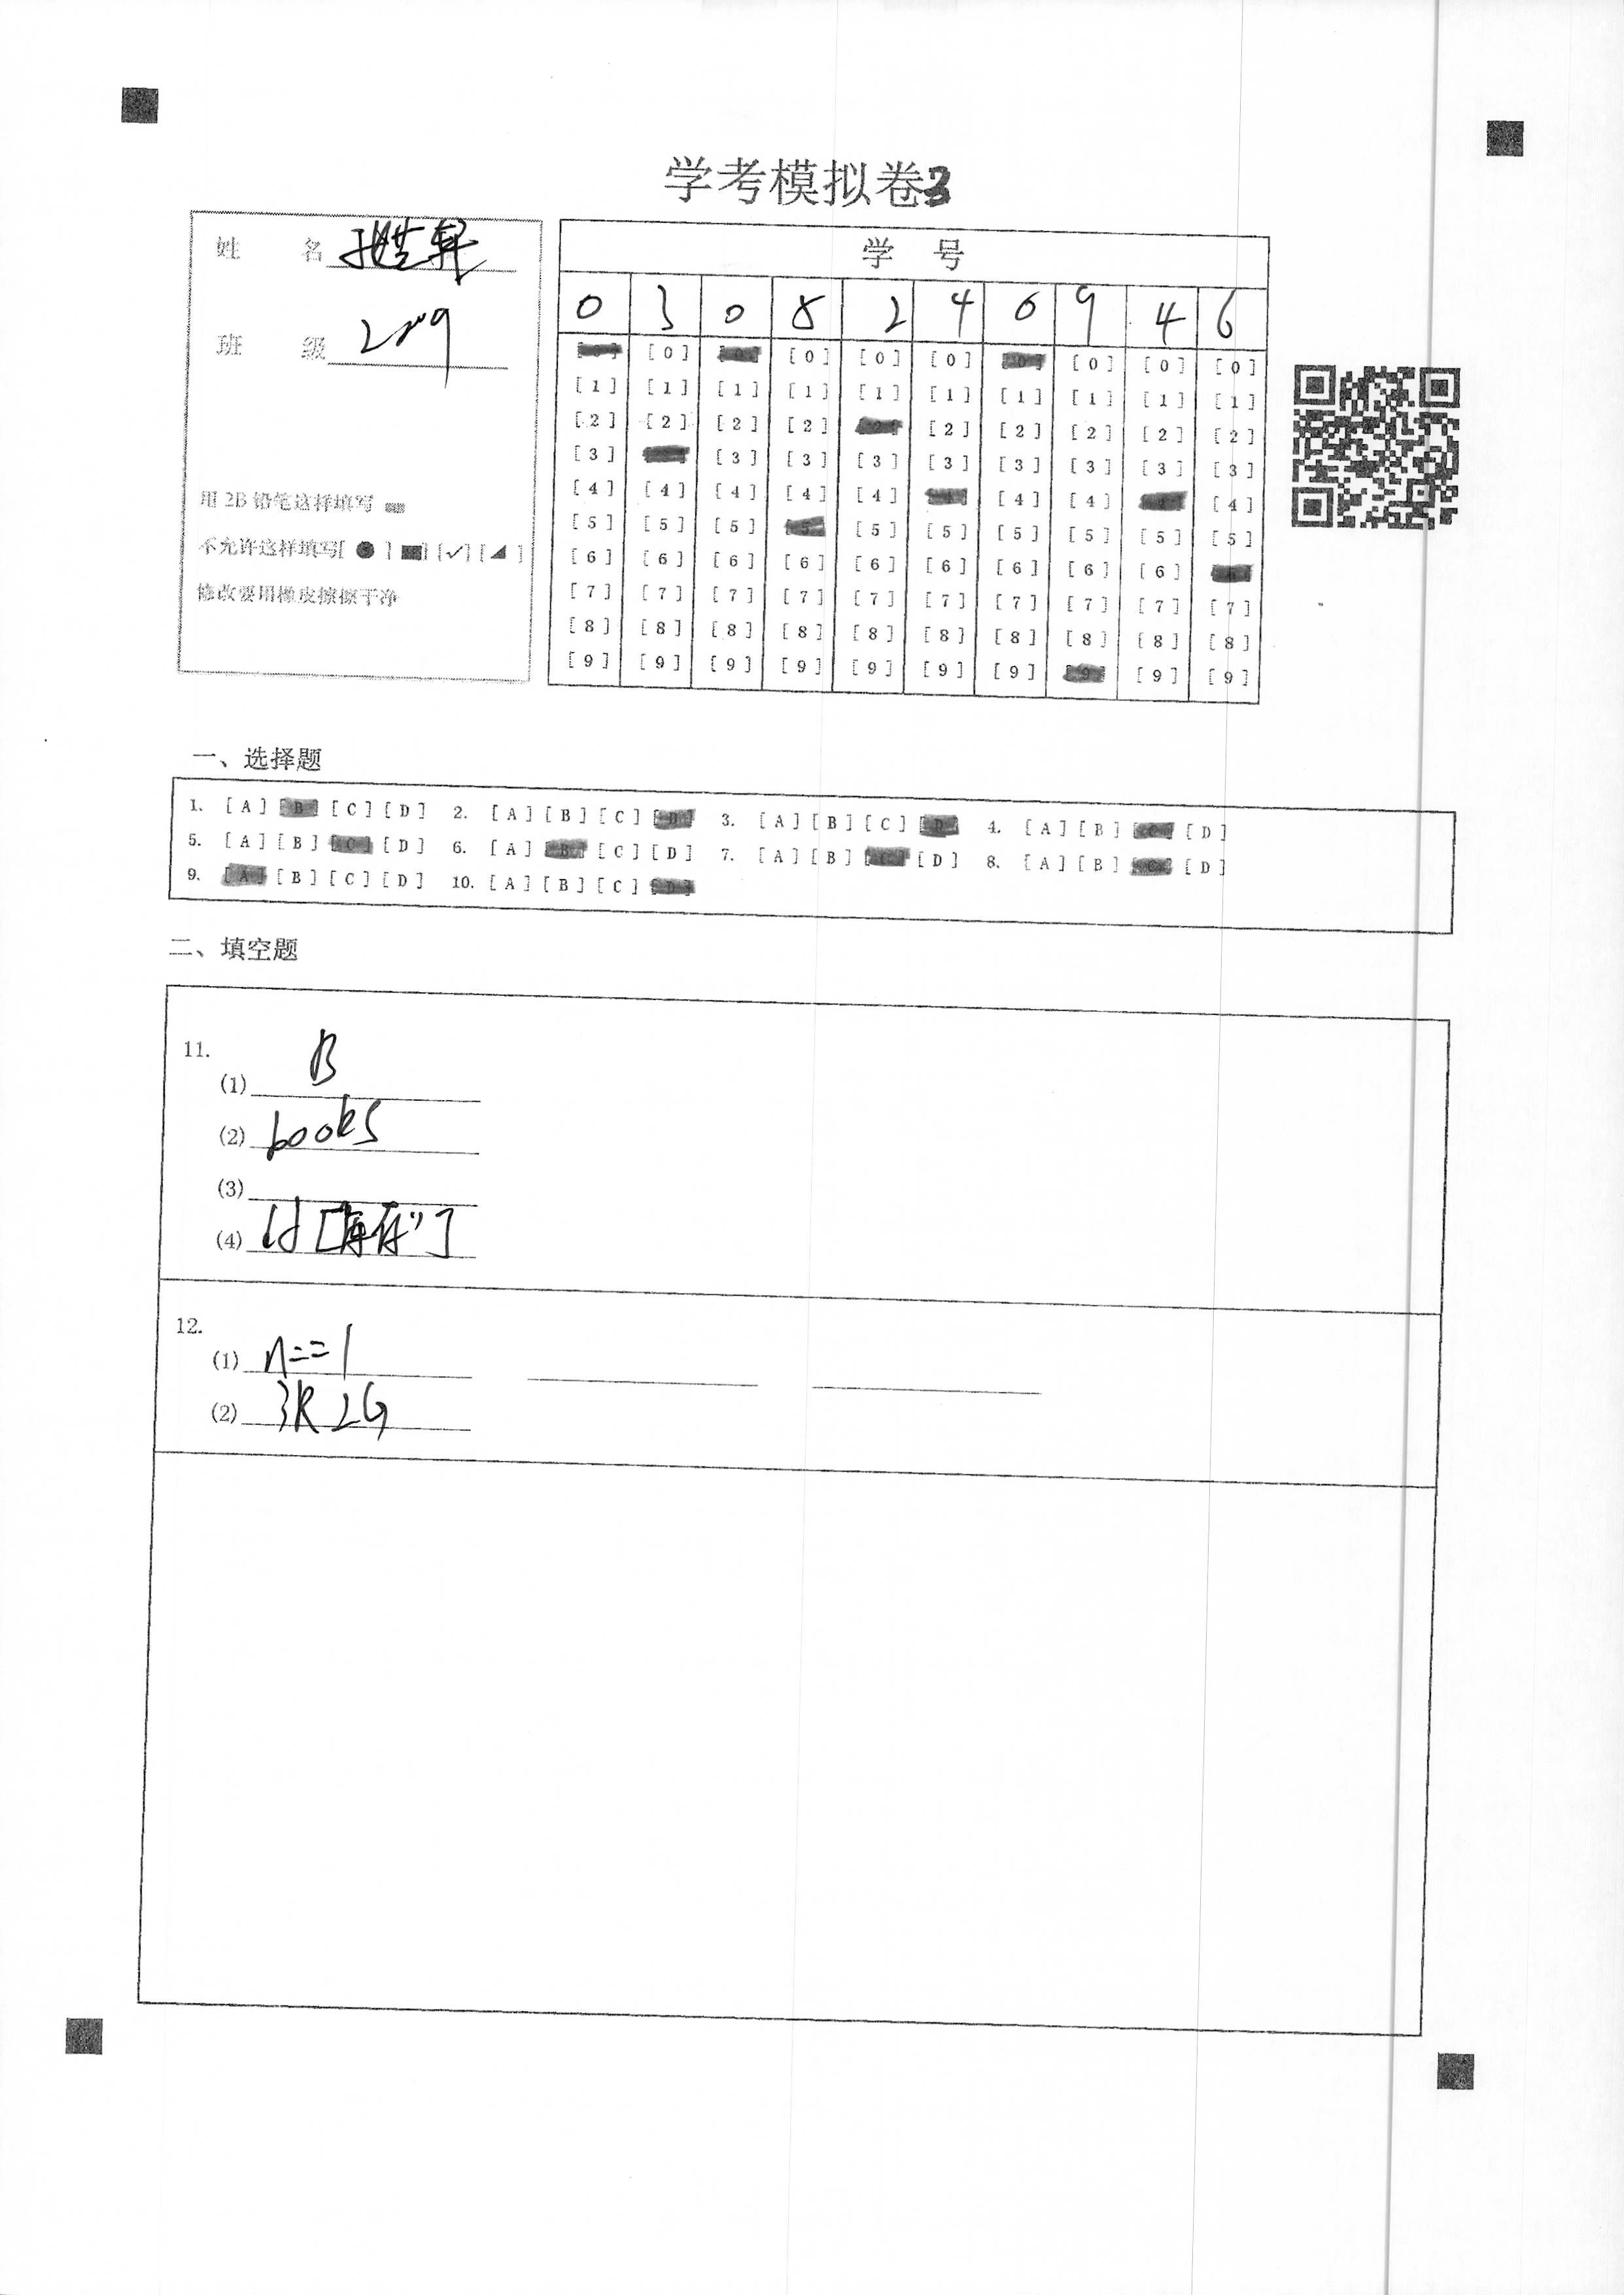 学考模拟卷3
姓 名
班 级 2009
用 2B 铅笔这样填写
不允许这样填写[ ● ] [■] [✓] [◢ ]
修改要用橡皮擦擦干净
学 号
0 3 0 8 2 4 0 9 4 6
[0] [0] [0] [0] [0] [0] [0] [0] [0] [0]
[1] [1] [1] [1] [1] [1] [1] [1] [1] [1]
[2] [2] [2] [2] [2] [2] [2] [2] [2] [2]
[3] [3] [3] [3] [3] [3] [3] [3] [3]
[4] [4] [4] [4] [4] [4] [4] [4] [4]
[5] [5] [5] [5] [5] [5] [5] [5] [5] [5]
[6] [6] [6] [6] [6] [6] [6] [6] [6]
[7] [7] [7] [7] [7] [7] [7] [7] [7] [7]
[8] [8] [8] [8] [8] [8] [8] [8] [8] [8]
[9] [9] [9] [9] [9] [9] [9] [9] [9] [9]
一、选择题
1. [A] [B] [C] [D] 2. [A] [B] [C] [D] 3. [A] [B] [C] [D] 4. [A] [B] [C] [D]
5. [A] [B] [C] [D] 6. [A] [B] [C] [D] 7. [A] [B] [C] [D] 8. [A] [B] [C] [D]
9. [A] [B] [C] [D] 10. [A] [B] [C] [D]
二、填空题
11.
(1) B
(2) books
(3)
(4) df["库存"]
12.
(1) n==1
(2) 3R2G